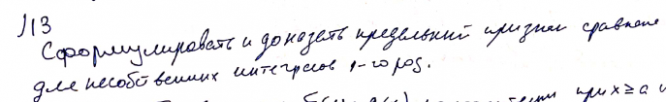 №13
Сформулировать и доказать предельный признак сравнения
для несобственных интегралов 1-го рода.
при x ≥ a и